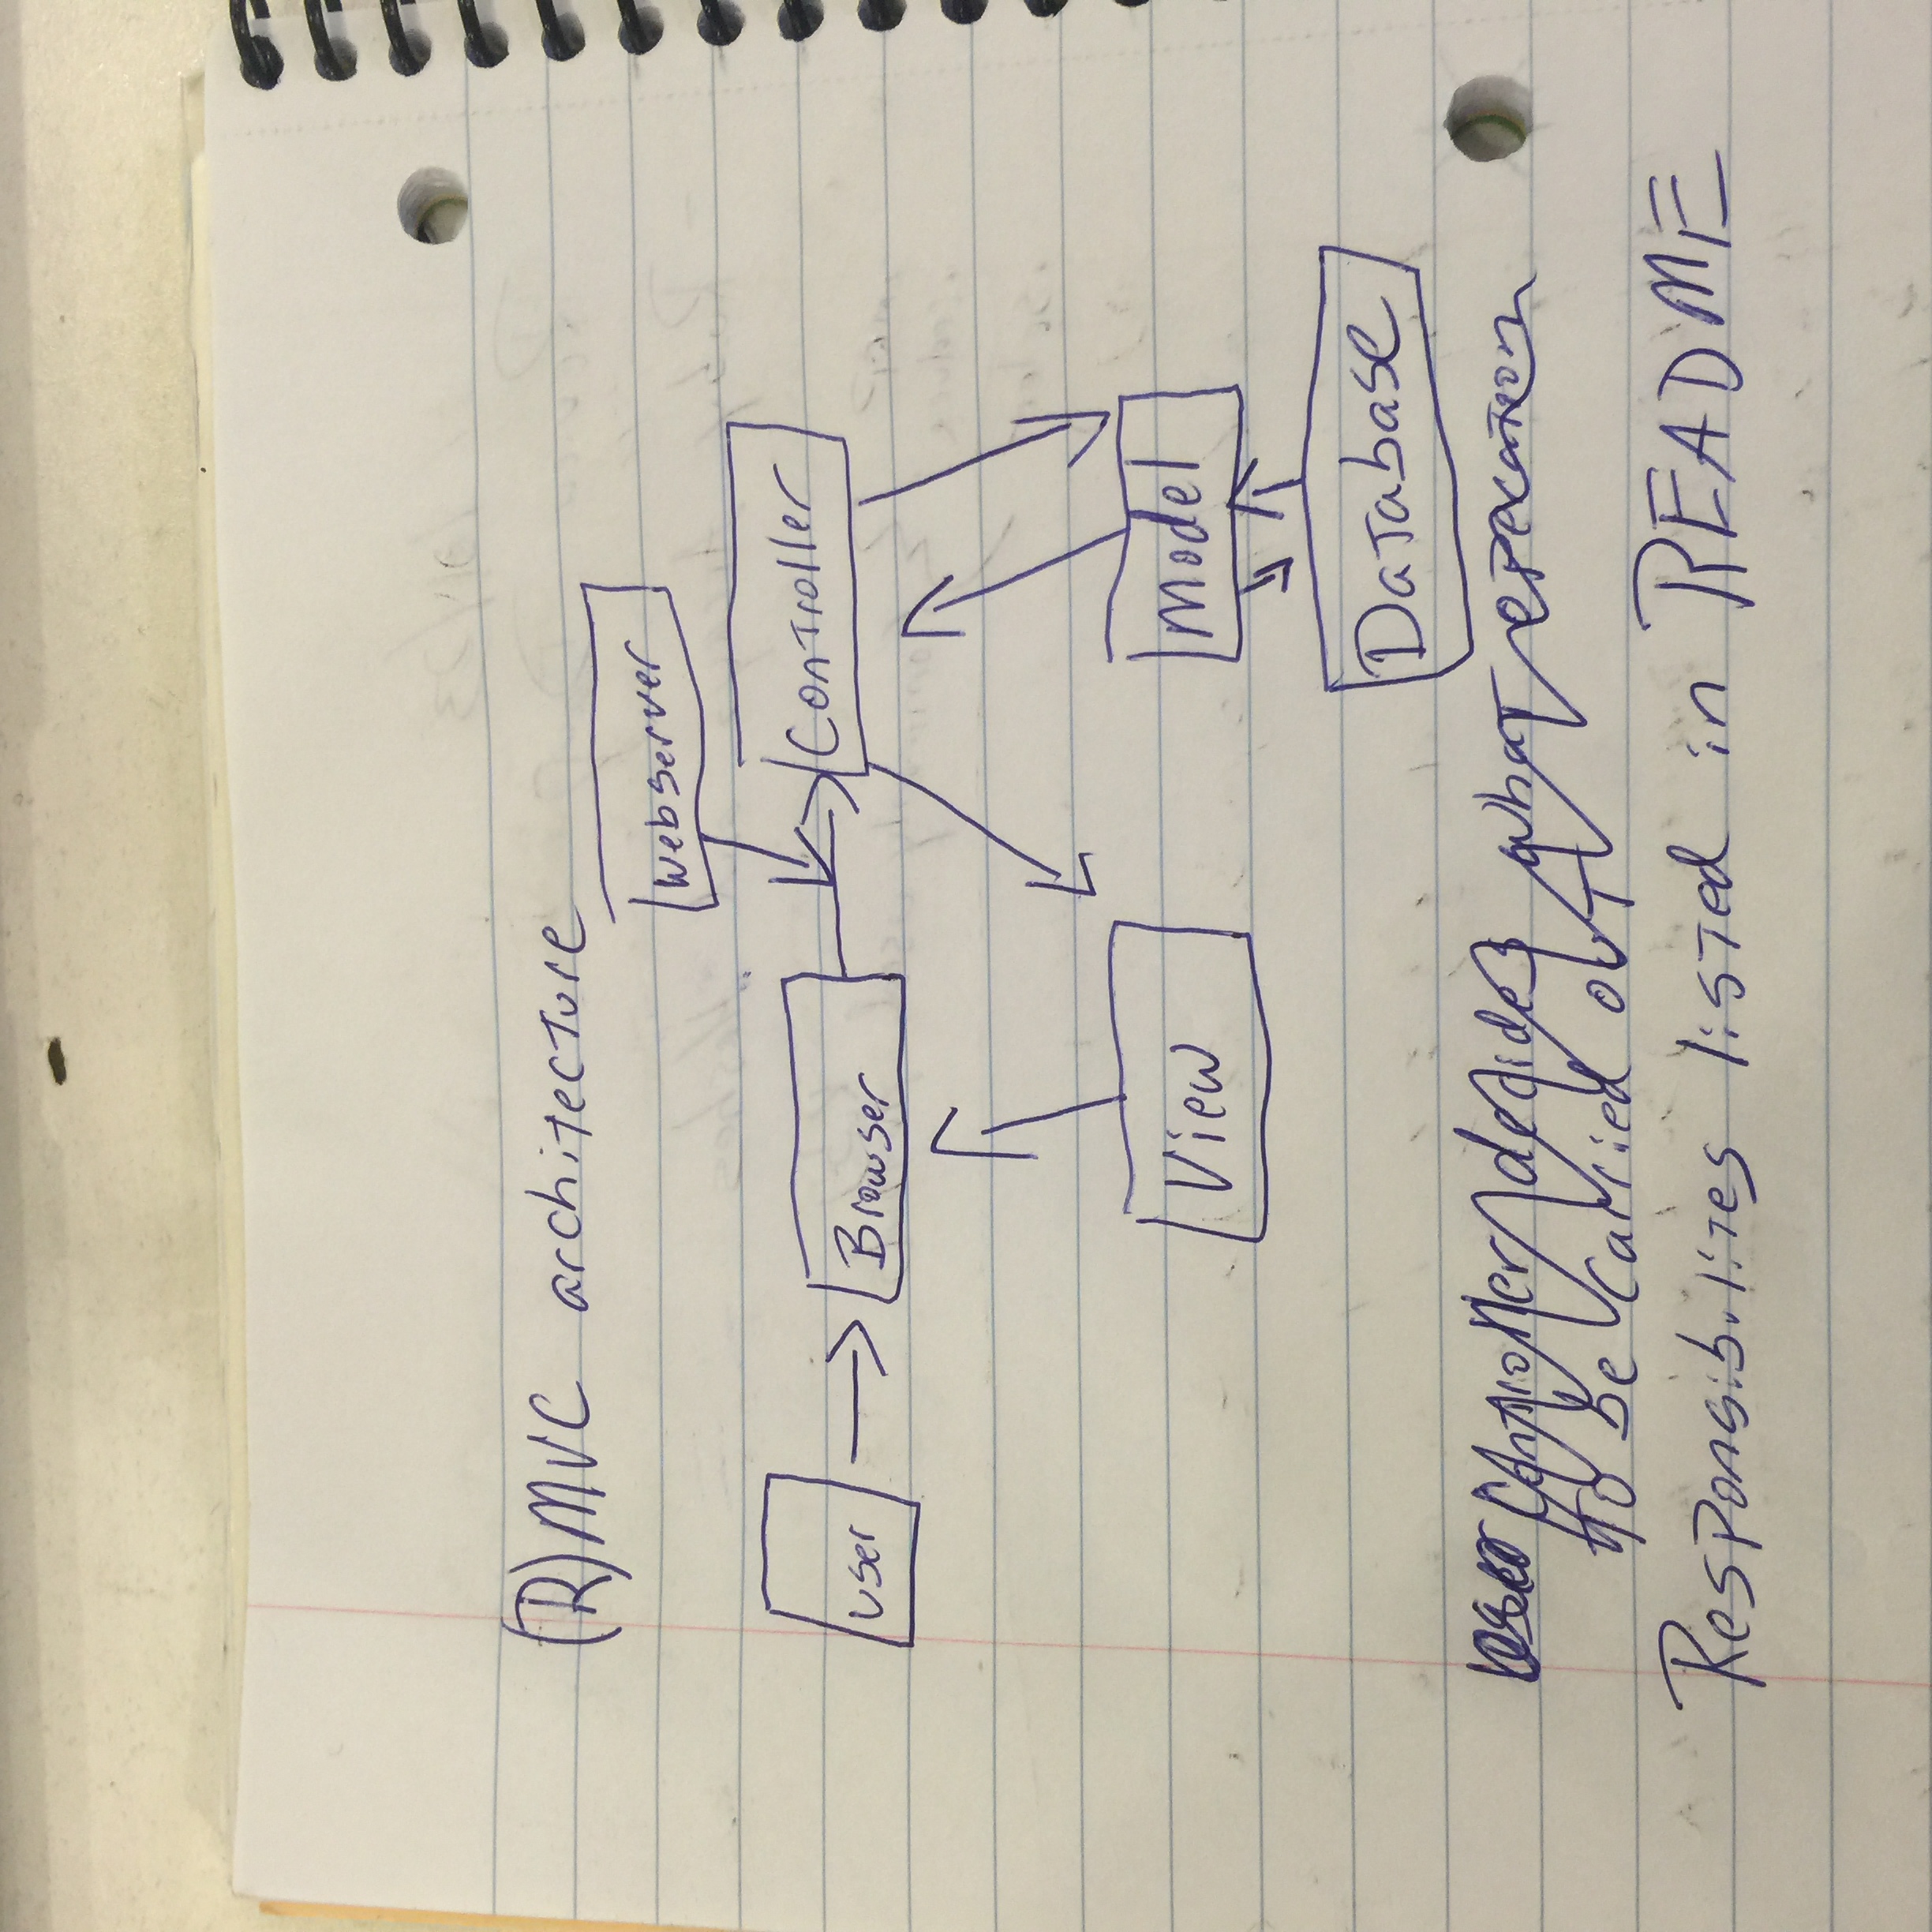 (R)MVC architecture
Webserver
User
Browser
Controller
View
Model
Database
User Controller decides what operation
to be carried out
Responsibilites listed in README